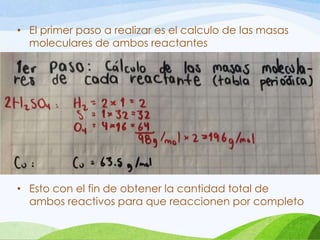 • El primer paso a realizar es el calculo de las masas
moleculares de ambos reactantes
1er Paso: Cálculo de las masas molecula-
res de cada reactante (tabla periódica)
2H₂SO₄: H₂ = 2 x 1 = 2
S = 1 x 32 = 32
O₄ = 4 x 16 = 64
98 g/mol x 2 = 196 g/mol
Cu: Cu = 63.5 g/mol
• Esto con el fin de obtener la cantidad total de
ambos reactivos para que reaccionen por completo